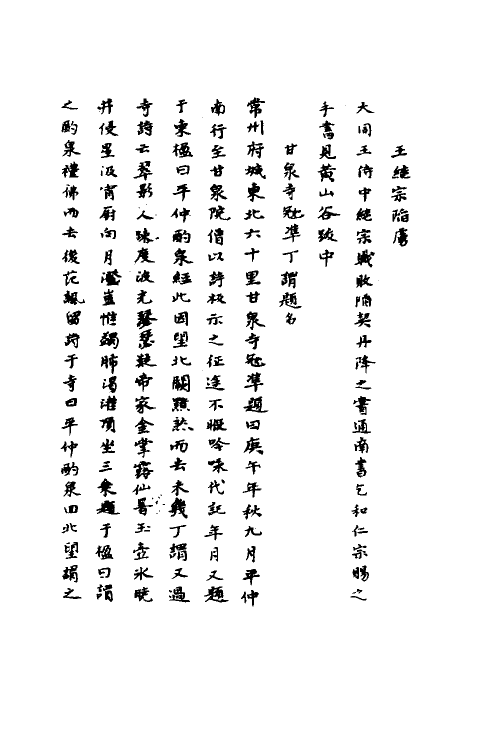 王繼宗陷虜
大同王侍中繼宗戰敗陷契丹降之書通南書乞和仁宗賜之
手書見黄山谷跋中
甘泉寺冦凖丁謂題名
常州府城東北六十里甘泉寺冦凖題曰庚午年秋九月平仲
南行至甘泉院僧以詩板示之征途不暇吟味代記年月又題
于東楹曰平仲酌泉經此因望北闕黯然而去未幾丁謂又過
奇詩云翠影人疎度波光瑟瑟凝帝家金掌露仙署玉壺氷曉
井侵星汲宵厨向月澄豈惟蠲肺渴灌頂坐三乗題于楹曰謂
之酌泉禮佛而去後范諷留詩于寺曰平仲酌泉回北望謂之